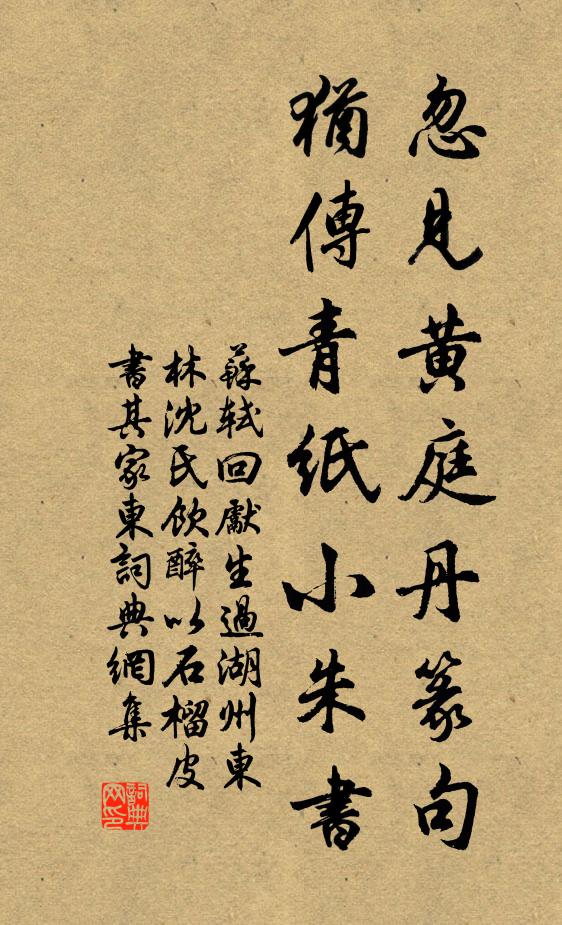 忽見黃庭丹篆句
猶傳青紙小朱書
蘇軾回獻生過湖州東
林沈氏飲醉以石榴皮
書其家東詞典網集
詞典网印